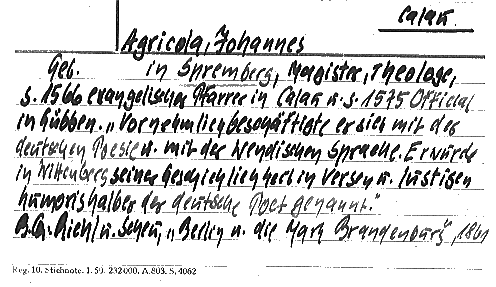 Calau.
Agricola, Johannes
Geb. in Spremberg, Magister, Theologe,
s. 1566 evangelischer Pfarrer in Calau u. s. 1575 Official
in Lübben. „Vornehmlich beschäftigte er sich mit der
deutschen Poesie u. mit der Wendischen Sprache. Er wurde
in Wittenberg seiner Geschicklichkeit in Versen u. lustigen
humors halber der deutsche Poet genannt."
u. die Mark Brandenburg", 1861
Reg. 10. Stichnote. 1. 59. 232000. A 803. S. 4062